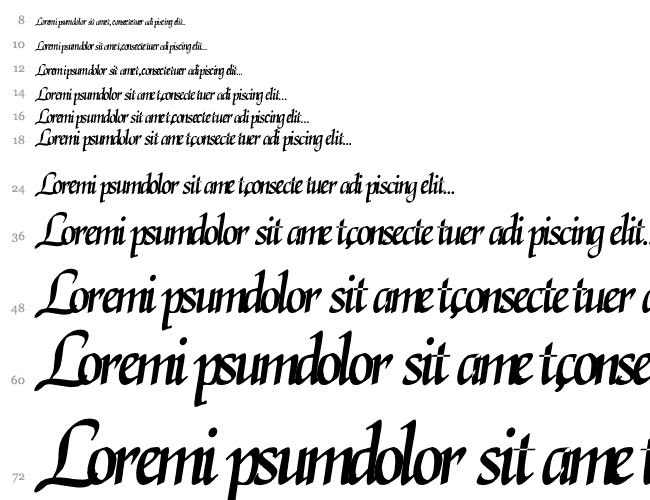 8 Lorem ipsum dolor sit amet, consectetuer adipiscing elit...
10 Lorem ipsum dolor sit amet, consectetuer adipiscing elit...
12 Lorem ipsum dolor sit amet, consectetuer adipiscing elit...
14 Lorem ipsum dolor sit amet, consectetuer adipiscing elit...
16 Lorem ipsum dolor sit amet, consectetuer adipiscing elit...
18 Lorem ipsum dolor sit amet, consectetuer adipiscing elit...
24 Lorem ipsum dolor sit amet, consectetuer adipiscing elit...
36 Lorem ipsum dolor sit amet, consectetuer adipiscing elit..
48 Lorem ipsum dolor sit amet, consectetuer a
60 Lorem ipsum dolor sit amet, conse
72 Lorem ipsum dolor sit amet